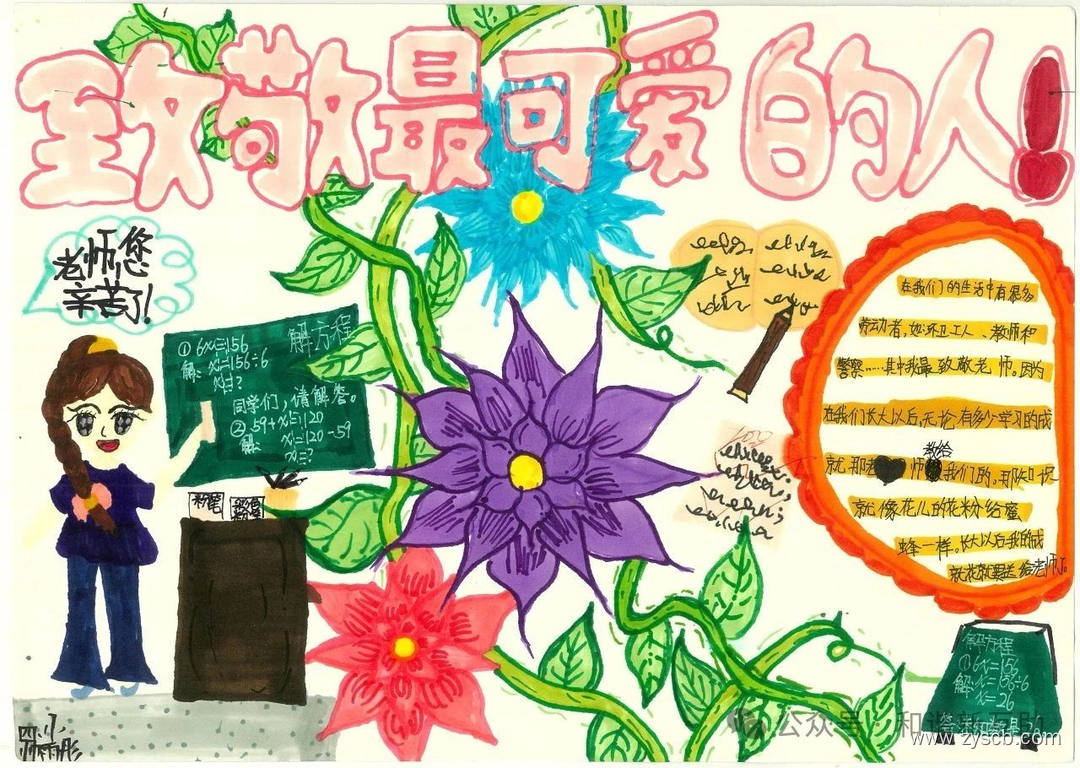 致敬最可爱的人!
老师,您
辛苦了!
解方程
①6x=156
解: x=156÷6
x=?
同学们,请解答。
②59+x=120
解: x=120-59
x=?
粉笔
100
在我们的生活中有很多
劳动者,如:环卫工人、教师和
警察……其中我最致敬老师。因为
在我们长大以后,无论有多少学习的成
就,那老师教给我们的,那
就像花儿的花粉给蜜
蜂一样。长大以后我的成
就花就要送给老师了。
解方程
①6x=156
解: x=156÷6
x=26
公众号
www.zyscb.com